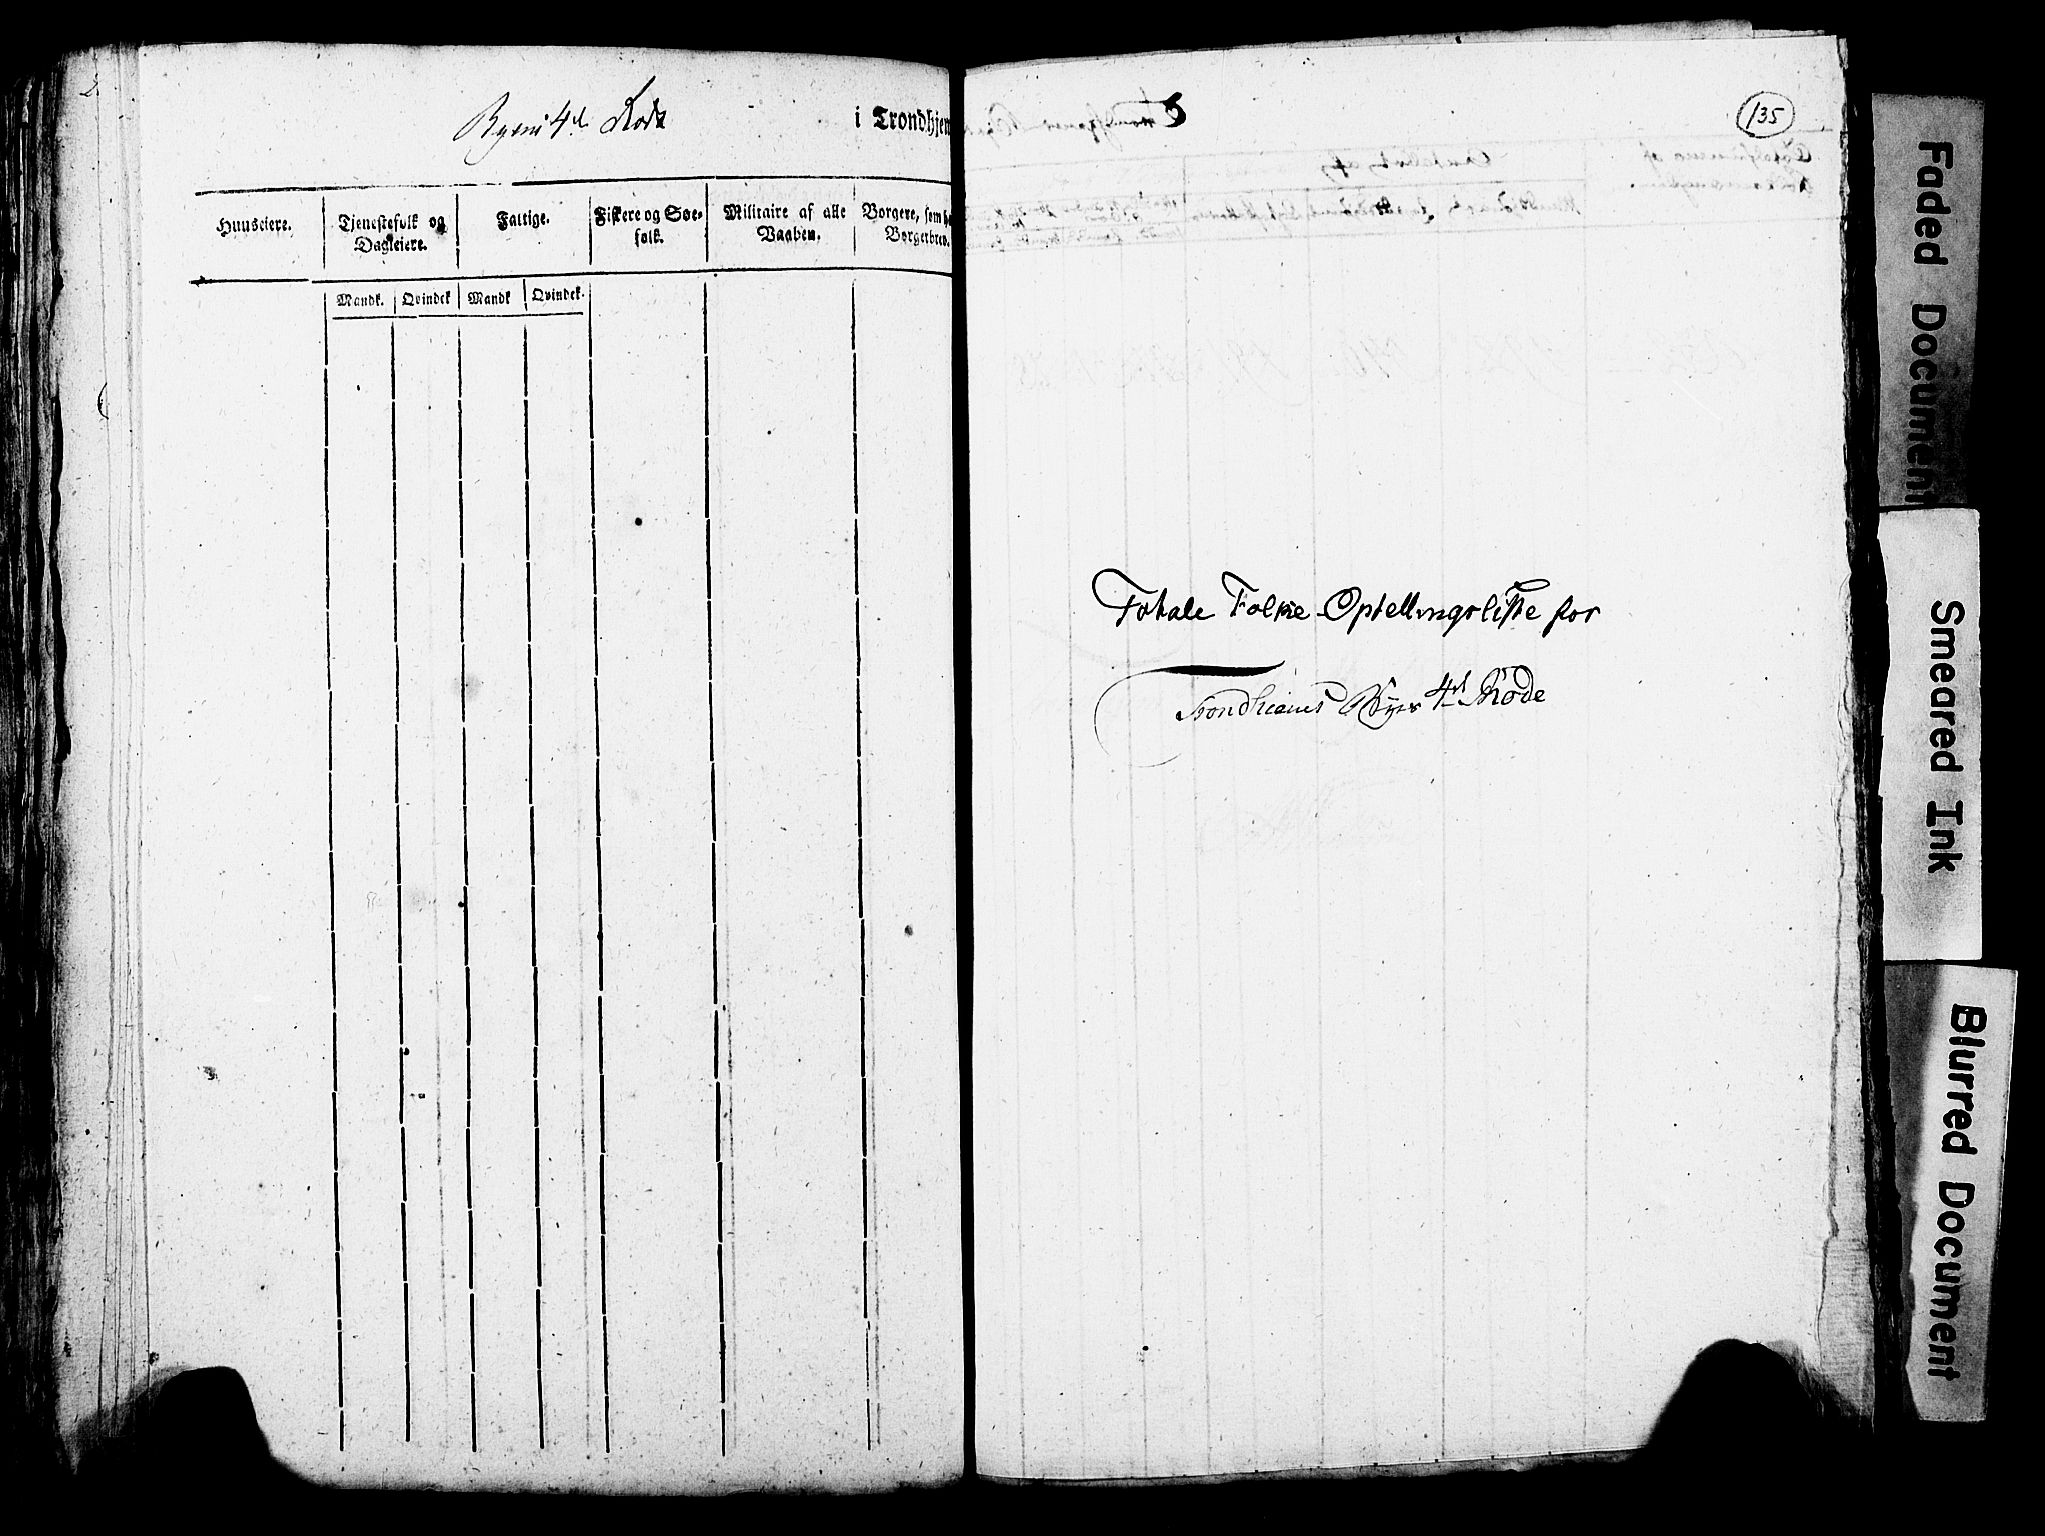 Byens 4de Rode
i Trondhjem
Huuseiere.
Tjenestefolk og Dagleiere.
Fattige.
Fiskere og Søe-
folk.
Militaire af alle
Vaaben.
Borgere, som
Borgerbrev.
Mandk. Qvindek Mandk Qvindek.
135
Totale Folke Optellingsliste for
Trondhiems Byes 4de Rode
Faded Document
Smeared Ink
Blurred Document